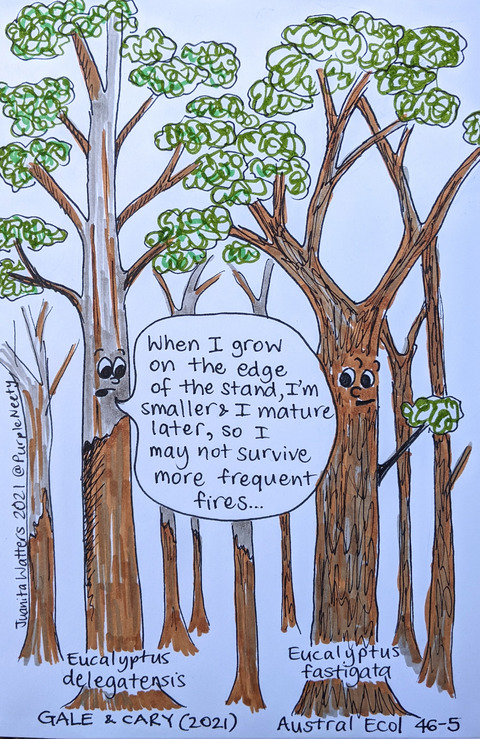 When I grow
on the edge
of the stand, I'm
smaller & I mature
later, so I
may not survive
more frequent
fires...
Juanita Watters 2021 @PurpleNeety
Eucalyptus
delegatensis
Eucalyptus
fastigata
GALE & CARY (2021)
Austral Ecol 46-5